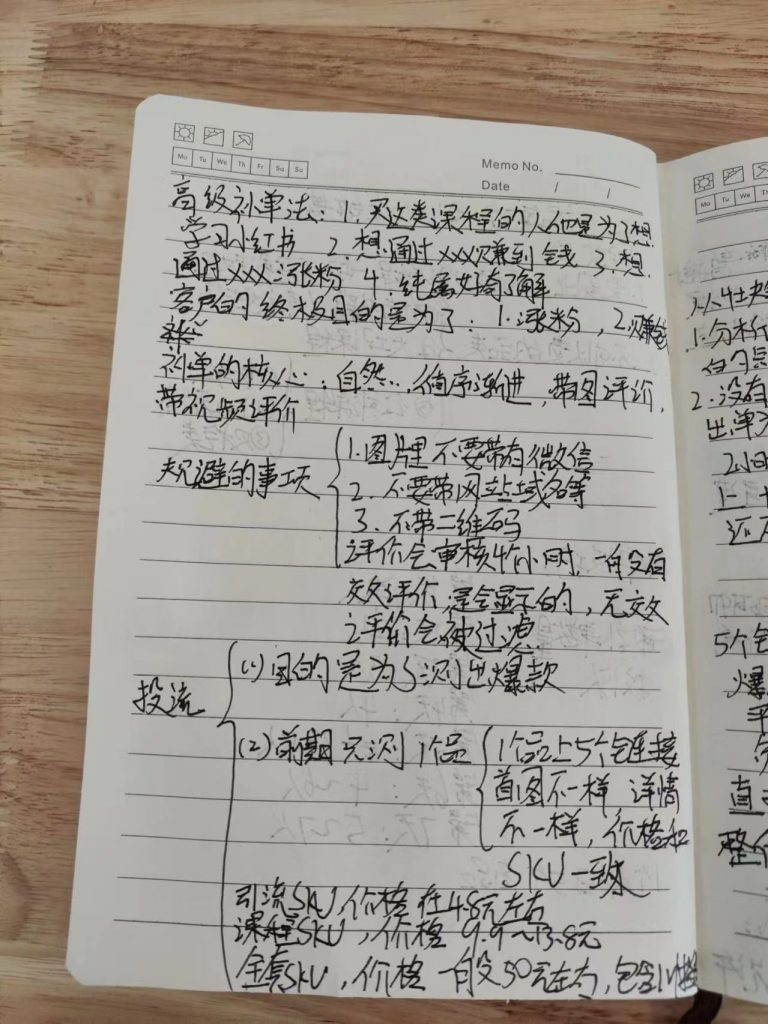 Mo Tu We Th Fr Sa Su
Memo No.
Date / /
高级补单法：1. 买这类课程的人他是为了想
学习小红书 2. 想通过XXX赚到钱 3. 想
通过XXX涨粉 4. 纯属好奇了解
客户的终极目的是为了：1. 涨粉，2. 赚钱
补单的核心：自然..，循序渐进，带图评价，
带视频评价
规避的事项
1. 图片里不要带有微信
2. 不要带网站域名等
3. 不带二维码
评价会审核4个小时，一般没有
效评价是会显示的，无效
评价会被过滤
投流
(1) 目的是为了测出爆款
(2) 前期只测1个品
1个品上5个链接
首图不一样 详情
不一样，价格和
SKU一致
引流SKU，价格在4.8元左右
课程SKU，价格9.9~13.8元
全套SKU，价格一般50元左右，包含
Mo Tu We Th
1. 分析
2. 没有
出单
5个
爆
平
直
整个